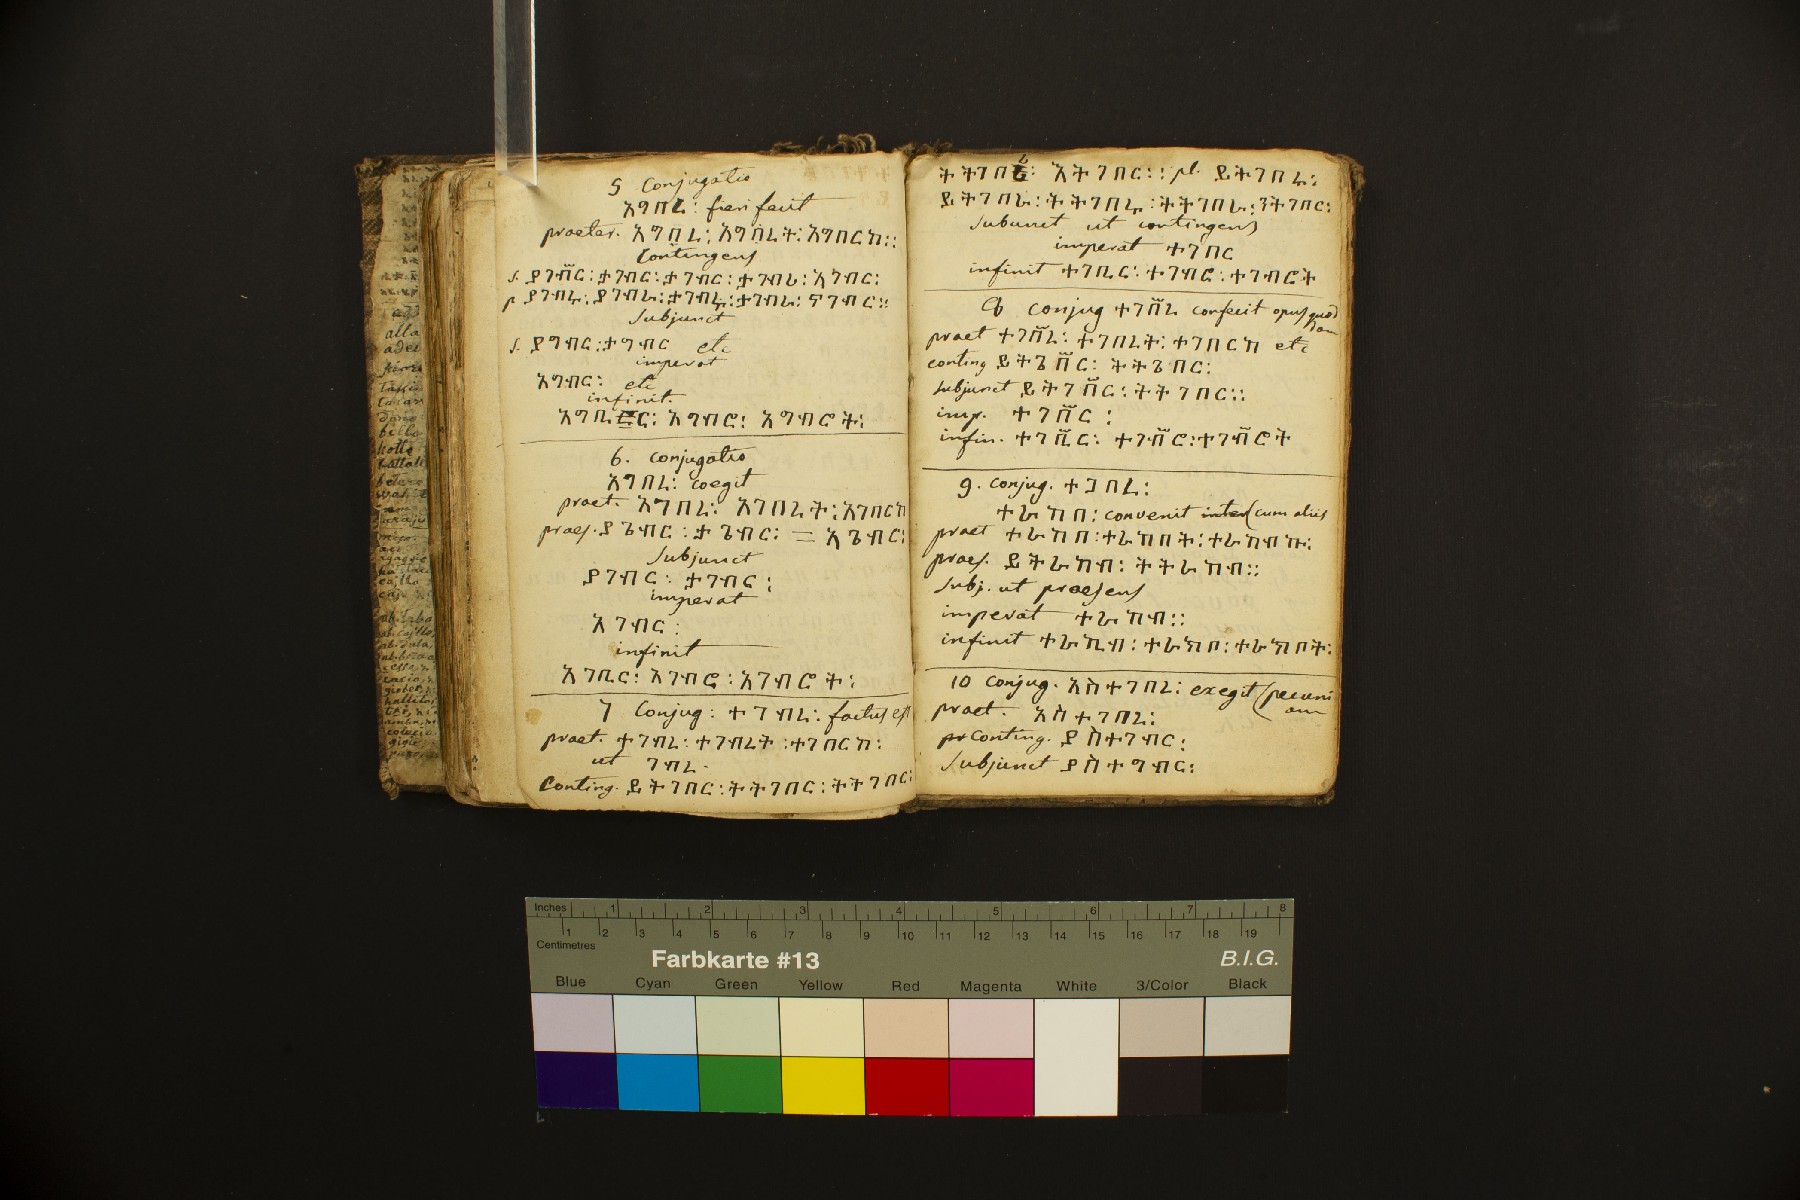 5 Conjugatio
አግበረ፡ fieri fecit
praeter. አግበረ፡ አግበረት፡ አግበርከ፡፡
Contingens
s. ያገብር፡ ታገብር፡ ታገብር፡ ታገብሪ፡ አገብር፡
p ያገብሩ፡ ያገብራ፡ ታገብሩ፡ ታገብራ፡ ናገብር፡፡
Subjunct
s. ያግብር፡ ታግብር etc
imperat
አግብር፡ etc
infinit.
አግቢር፡ አግብሮ፡ አግብሮት፡
6. Conjugatio
አገበረ፡ coegit
praet. አገበረ፡ አገበረት፡ አገበርከ
praes. ያጌብር፡ ታጌብር፡ = አጌብር፡
Subjunct
ያገብር፡ ታገብር፡
imperat
አገብር፡
infinit
አገቢር፡ አገብሮ፡ አገብሮት፡
7 Conjug: ተገብረ፡ factus est
praet. ተገብረ፡ ተገብረት፡ ተገበርከ፡
ut ገብረ.
Conting. ይትገበር፡ ትትገበር፡ ትትገበር፡
ትትገበሪ፡ እትገበር፡፡ pl. ይትገበሩ፡
ይትገበራ፡ ትትገበሩ፡ ትትገበራ፡ ንትገበር፡
Subiunct ut contingens
imperat ተገበር
infinit ተገቢር፡ ተገብሮ፡ ተገብሮት
8 conjug ተገበረ confecit opus quod
dam
praet ተገበረ፡ ተገበረት፡ ተገበርከ etc
conting ይትጌበር፡ ትትጌበር፡
Subjunct ይትገበር፡ ትትገበር፡፡
imp. ተገበር፡
infin. ተገቢር፡ ተገብሮ፡ ተገብሮት
9. Conjug. ተጋበረ፡
ተራከበ፡ convenit inter (cum aliis
praet ተራከበ፡ ተራከበት፡ ተራከብኩ፡
praes. ይትራከብ፡ ትትራከብ፡፡
Subj. ut praesens
imperat ተራከብ፡፡
infinit ተራኪብ፡ ተራክቦ፡ ተራክቦት፡
10 Conjug. አስተገበረ፡ exegit (pecuni
am
praet. አስተገበረ፡
pr Conting. ያስተገብር፡
Subjunct ያስተግብር፡
Inches 1 2 3 4 5 6 7 8
Centimetres 1 2 3 4 5 6 7 8 9 10 11 12 13 14 15 16 17 18 19
Farbkarte #13 B.I.G.
Blue Cyan Green Yellow Red Magenta White 3/Color Black